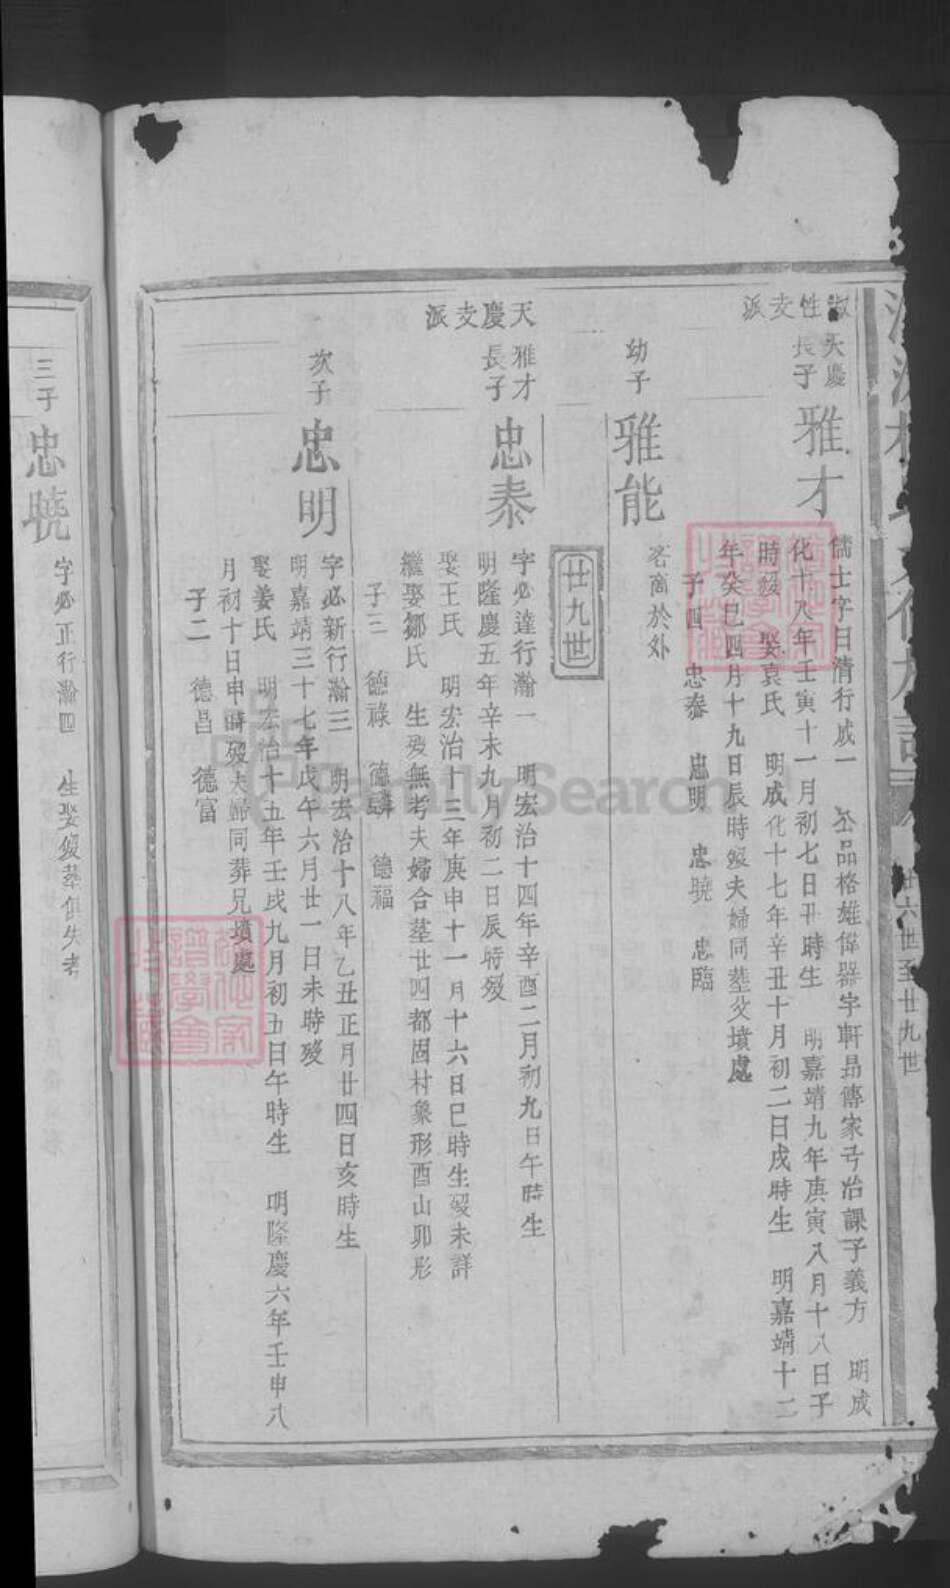 性支派
天慶
長子
雅才
儒士字日清行成一 丕品格雄偉器宇軒昂傳家有冶課子義方 明成
化十八年壬寅十一月初七日丑時生 明嘉靖九年庚寅八月十八日子
時歿 娶袁氏 明成化十七年辛丑十月初二日戌時生 明嘉靖十二
年癸巳四月十九日辰時歿夫婦同塟父墳處
子四 忠泰 忠明 忠曉 忠臨
幼子
雅能
客商於外
廿九世
天慶支派
雅才
長子
忠泰
字必達行瀚一 明宏治十四年辛酉二月初九日午時生
明隆慶五年辛未九月初二日辰時歿
娶王氏 明宏治十三年庚申十一月十六日巳時生歿未詳
繼娶鄒氏 生歿無考夫婦合塟廿四都固村象形酉山卯形
子三 德祿 德麟 德福
次子
忠明
字必新行瀚三 明宏治十八年乙丑正月廿四日亥時生
明嘉靖三十七年戊午六月廿一日未時歿
娶姜氏 明宏治十五年壬戌九月初五日午時生 明隆慶六年壬申八
月初十日申時歿夫婦同葬兄墳處
子二 德昌 德富
三子
忠曉
字必正行瀚四 生娶歿葬俱失考
六世至廿九世
FamilySearch